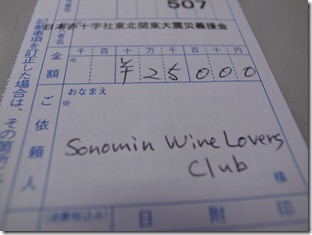 507
日本赤十字社東北関東大震災義援金
千 百 十 万 千 百 十 円
金額
※
¥ 2 5 0 0 0
おなまえ
※
ご依頼人
Sonomin Wine Lovers
Club
様
日 附 印
記載事項を訂正した場合は、その箇所に